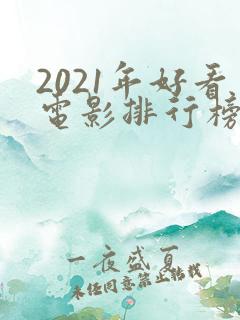 2021年好看
电影排行榜
一夜盛夏
未经同意禁止转载